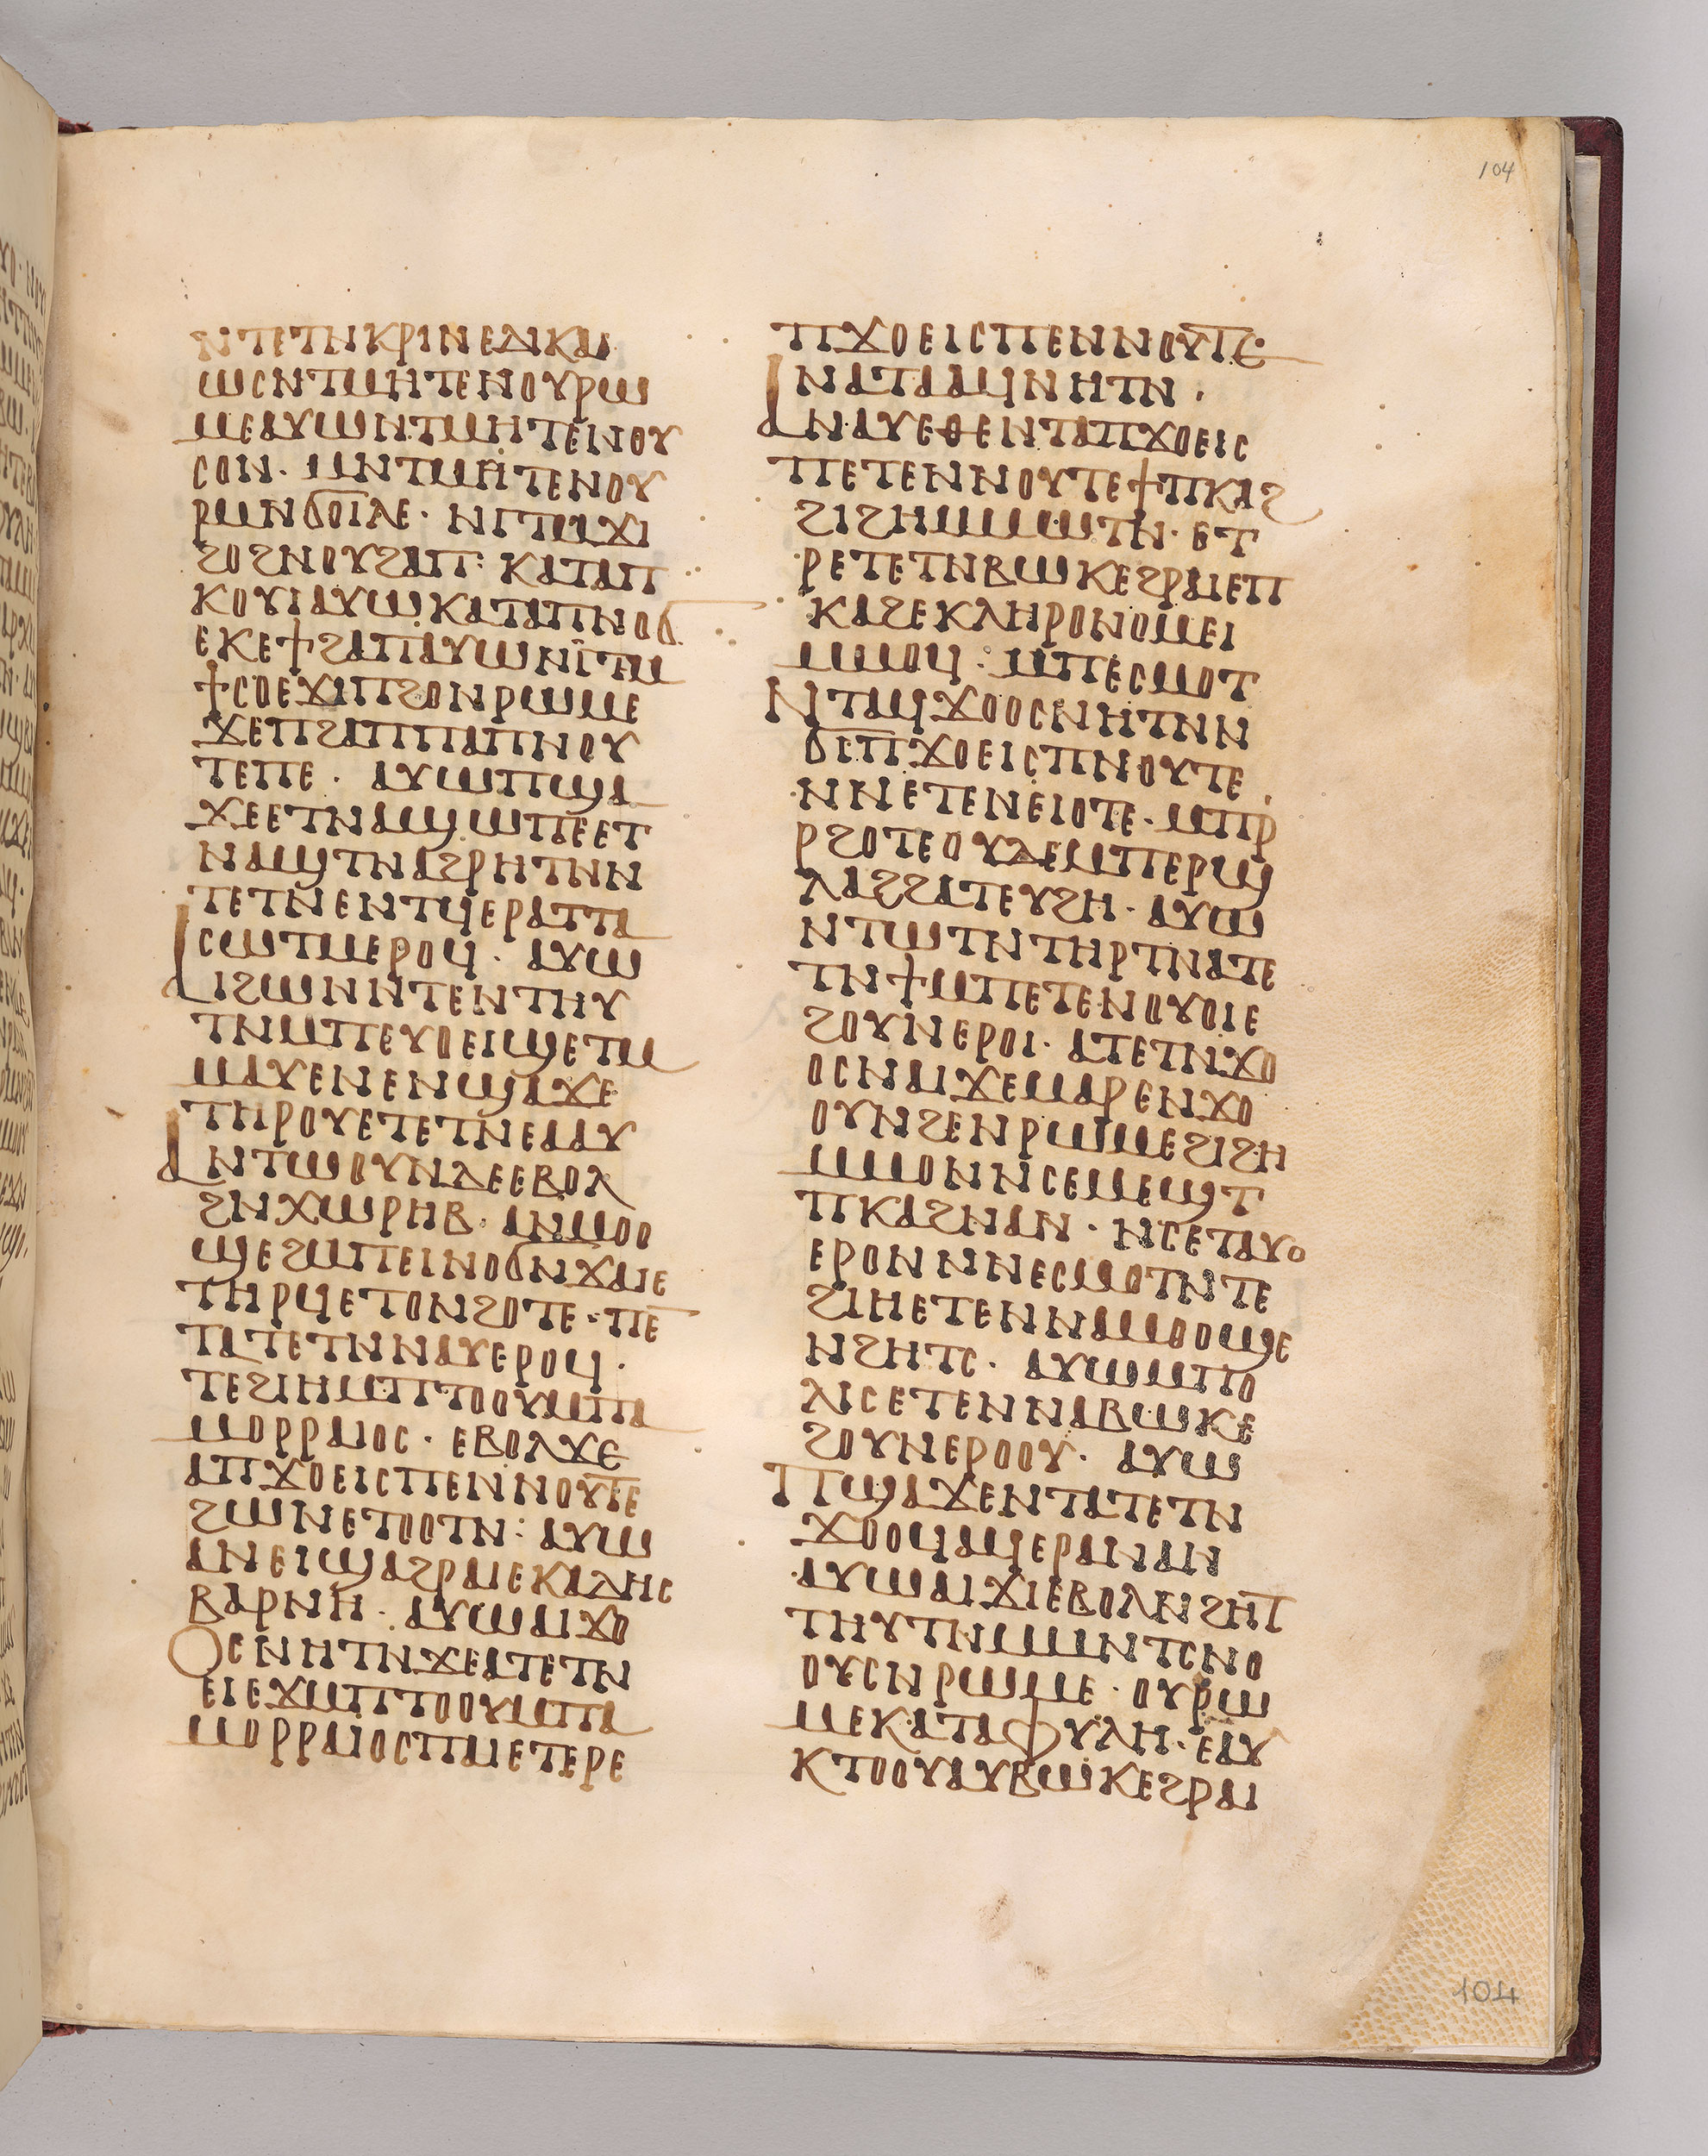 104
ⲛⲧⲉⲧⲛⲕⲣⲓⲛⲉⲇⲓⲕⲁⲓ
ⲱⲥⲛⲧⲙⲏⲧⲉⲛⲟⲩⲣⲱ
ⲙⲉⲁⲩⲱⲛⲧⲙⲏⲧⲉⲛⲟⲩ
ⲥⲟⲛ· ⲙⲛⲧⲙⲏⲧⲉⲛⲟⲩ
ⲣⲙⲛϭⲟⲓⲗⲉ· ⲛⲅⲧⲙϫⲓ
ϩⲟϩⲛⲟⲩϩⲁⲡ: ⲕⲁⲧⲁⲡ
ⲕⲟⲩⲓⲁⲩⲱⲕⲁⲧⲁⲡⲛⲟϭ
ⲉⲕⲉϯϩⲁⲡⲁⲩⲱⲛⲅⲧⲙ
ϯⲥⲟⲉϫⲓⲡϩⲟⲛⲣⲱⲙⲉ
ϫⲉⲡϩⲁⲡⲡⲁⲡⲛⲟⲩ
ⲧⲉⲡⲉ· ⲁⲩⲱⲡϣⲁ
ϫⲉⲉⲧⲛⲁϣⲱⲡⲉⲉⲧ
ⲛⲁϣⲧⲛⲁϩⲣⲏⲧⲛⲛ
ⲧⲉⲧⲛⲉⲛⲧϥⲉⲣⲁⲧⲧⲁ
ⲥⲱⲧⲙⲉⲣⲟϥ· ⲁⲩⲱ
ⲁⲓϩⲱⲛⲛⲧⲉⲛⲧⲏⲩ
ⲧⲛⲙⲡⲉⲩⲟⲉⲓϣⲉⲧⲙ
ⲙⲁⲩⲉⲛⲉⲛϣⲁϫⲉ
ⲧⲏⲣⲟⲩⲉⲧⲉⲧⲛⲉⲁⲁⲩ
ⲁⲛⲧⲱⲟⲩⲛⲇⲉⲉⲃⲟⲗ
ϩⲛⲭⲱⲣⲏⲃ· ⲁⲛⲙⲟⲟ
ϣⲉϩⲙⲡⲉⲓⲛⲟϭⲛϫⲁⲓⲉ
ⲧⲏⲣϥⲉⲧⲟⲛϩⲟⲧⲉ· ⲡⲉ
ⲧⲁⲧⲉⲧⲛⲛⲁⲩⲉⲣⲟϥ·
ⲧⲉϩⲓⲏⲙⲡⲧⲟⲟⲩⲙⲡⲁ
ⲙⲟⲣⲣⲁⲓⲟⲥ· ⲉⲃⲟⲗϫⲉ
ⲁⲡϫⲟⲉⲓⲥⲡⲉⲛⲛⲟⲩⲧⲉ
ϩⲱⲛⲉⲧⲟⲟⲧⲛ: ⲁⲩⲱ
ⲁⲛⲉⲓϣⲁϩⲣⲁⲓⲉⲕⲁⲇⲏⲥ
ⲃⲁⲣⲛⲏ· ⲁⲩⲱⲁⲓϫⲟ
ⲟⲥⲛⲏⲧⲛϫⲉⲁⲧⲉⲧⲛ
ⲉⲓⲉϫⲙⲡⲧⲟⲟⲩⲙⲡⲁ
ⲙⲟⲣⲣⲁⲓⲟⲥⲡⲁⲓⲉⲧⲉⲣⲉ
ⲡϫⲟⲉⲓⲥⲡⲉⲛⲛⲟⲩⲧⲉ·
ⲛⲁⲧⲁⲁϥⲛⲏⲧⲛ·
ⲁⲛⲁⲩⲉⲑⲉⲛⲧⲁⲡϫⲟⲉⲓⲥ
ⲡⲉⲧⲉⲛⲛⲟⲩⲧⲉϯⲡⲕⲁϩ
ϩⲓϩⲏⲙⲙⲱⲧⲛ· ⲉⲧ
ⲣⲉⲧⲉⲧⲛⲃⲱⲕⲉϩⲣⲁⲓⲉⲡ
ⲕⲁϩⲉⲕⲗⲏⲣⲟⲛⲟⲙⲉⲓ
ⲙⲙⲟϥ: ⲙⲡⲉⲥⲙⲟⲧ
ⲛⲧⲁϥϫⲟⲟⲥⲛⲏⲧⲛⲛ
ϭⲓⲡϫⲟⲉⲓⲥⲡⲛⲟⲩⲧⲉ
ⲛⲛⲉⲧⲉⲛⲉⲓⲟⲧⲉ· ⲙⲡⲣ
ⲣϩⲟⲧⲉⲟⲩⲇⲉⲙⲡⲉⲣϣ
ⲗⲁϩϩⲁⲧⲉⲩϩⲏ· ⲁⲩⲱ
ⲛⲧⲱⲧⲛⲧⲏⲣⲧⲛⲁⲧⲉ
ⲧⲛϯⲙⲡⲉⲧⲉⲛⲟⲩⲟⲓⲉ
ϩⲟⲩⲛⲉⲣⲟⲓ· ⲁⲧⲉⲧⲛϫⲟ
ⲟⲥⲛⲁⲓϫⲉⲙⲁⲣⲉⲛϫⲟ
ⲟⲩⲛϩⲉⲛⲣⲱⲙⲉϩⲓϩⲏ
ⲙⲙⲟⲛⲛⲥⲉⲙⲉϣⲧ
ⲡⲕⲁϩⲛⲁⲛ· ⲛⲥⲉⲧⲁⲩⲟ
ⲉⲣⲟⲛⲛⲛⲉⲥⲙⲟⲧⲛⲧⲉ
ϩⲓⲏⲉⲧⲉⲛⲛⲁⲙⲟⲟϣⲉ
ⲛϩⲏⲧⲥ· ⲁⲩⲱⲙⲡⲟ
ⲗⲓⲥⲉⲧⲉⲛⲛⲁⲃⲱⲕⲉ
ϩⲟⲩⲛⲉⲣⲟⲟⲩ· ⲁⲩⲱ
ⲡϣⲁϫⲉⲛⲧⲁⲧⲉⲧⲛ
ϫⲟⲟϥⲁϥⲉⲣⲁⲛⲁⲓ
ⲁⲩⲱⲁⲓϫⲓⲉⲃⲟⲗⲛϩⲏⲧ
ⲧⲏⲩⲧⲛⲙⲙⲛⲧⲥⲛⲟ
ⲟⲩⲥⲛⲣⲱⲙⲉ· ⲟⲩⲣⲱ
ⲙⲉⲕⲁⲧⲁⲫⲩⲗⲏ· ⲉⲁⲩ
ⲕⲧⲟⲟⲩⲁⲩⲃⲱⲕⲉϩⲣⲁⲓ
104